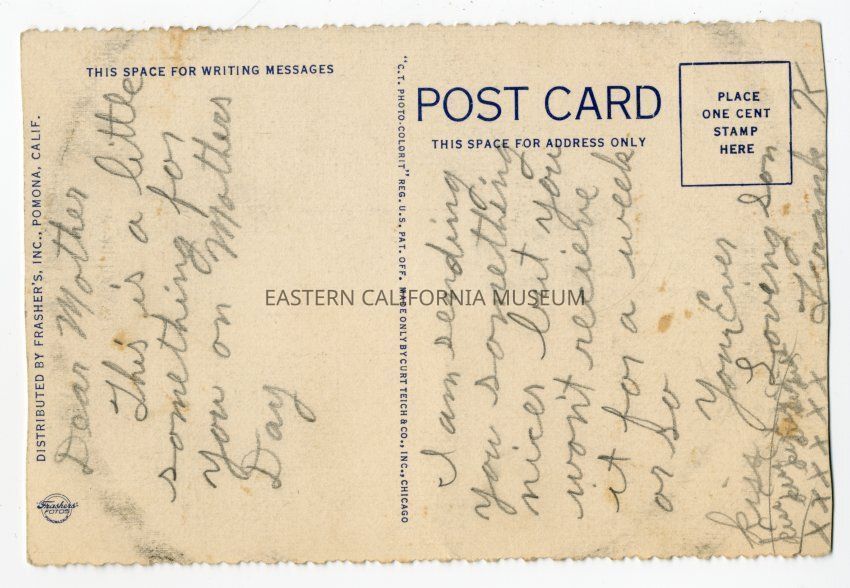 THIS SPACE FOR WRITING MESSAGES
POST CARD
THIS SPACE FOR ADDRESS ONLY
PLACE
ONE CENT
STAMP
HERE
DISTRIBUTED BY FRASHER'S, INC., POMONA, CALIF.
"C.T. PHOTO-COLORIT" REG. U.S. PAT. OFF. MADE ONLY BY CURT TEICH & CO., INC., CHICAGO
Frashers
FOTOS
Dear Mother
This is a little
something for
you on Mothers
Day
I am sending
you something
nicer but you
won't recieve
it for a week
or so
Your Ever
Loving Son
Frank K
kiss
xxxxxxx
EASTERN CALIFORNIA MUSEUM